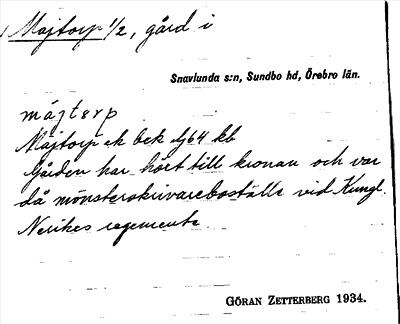 Majtorp 1/2, gård i
Snavlunda s:n, Sundbo hd, Örebro län.
májtɛrp
Majtorp ek bek Gj64 kb
Gården har hört till kronan och var
då mönsterskrivareboställe vid Kungl.
Nerikes regemente.
GÖRAN ZETTERBERG 1934.